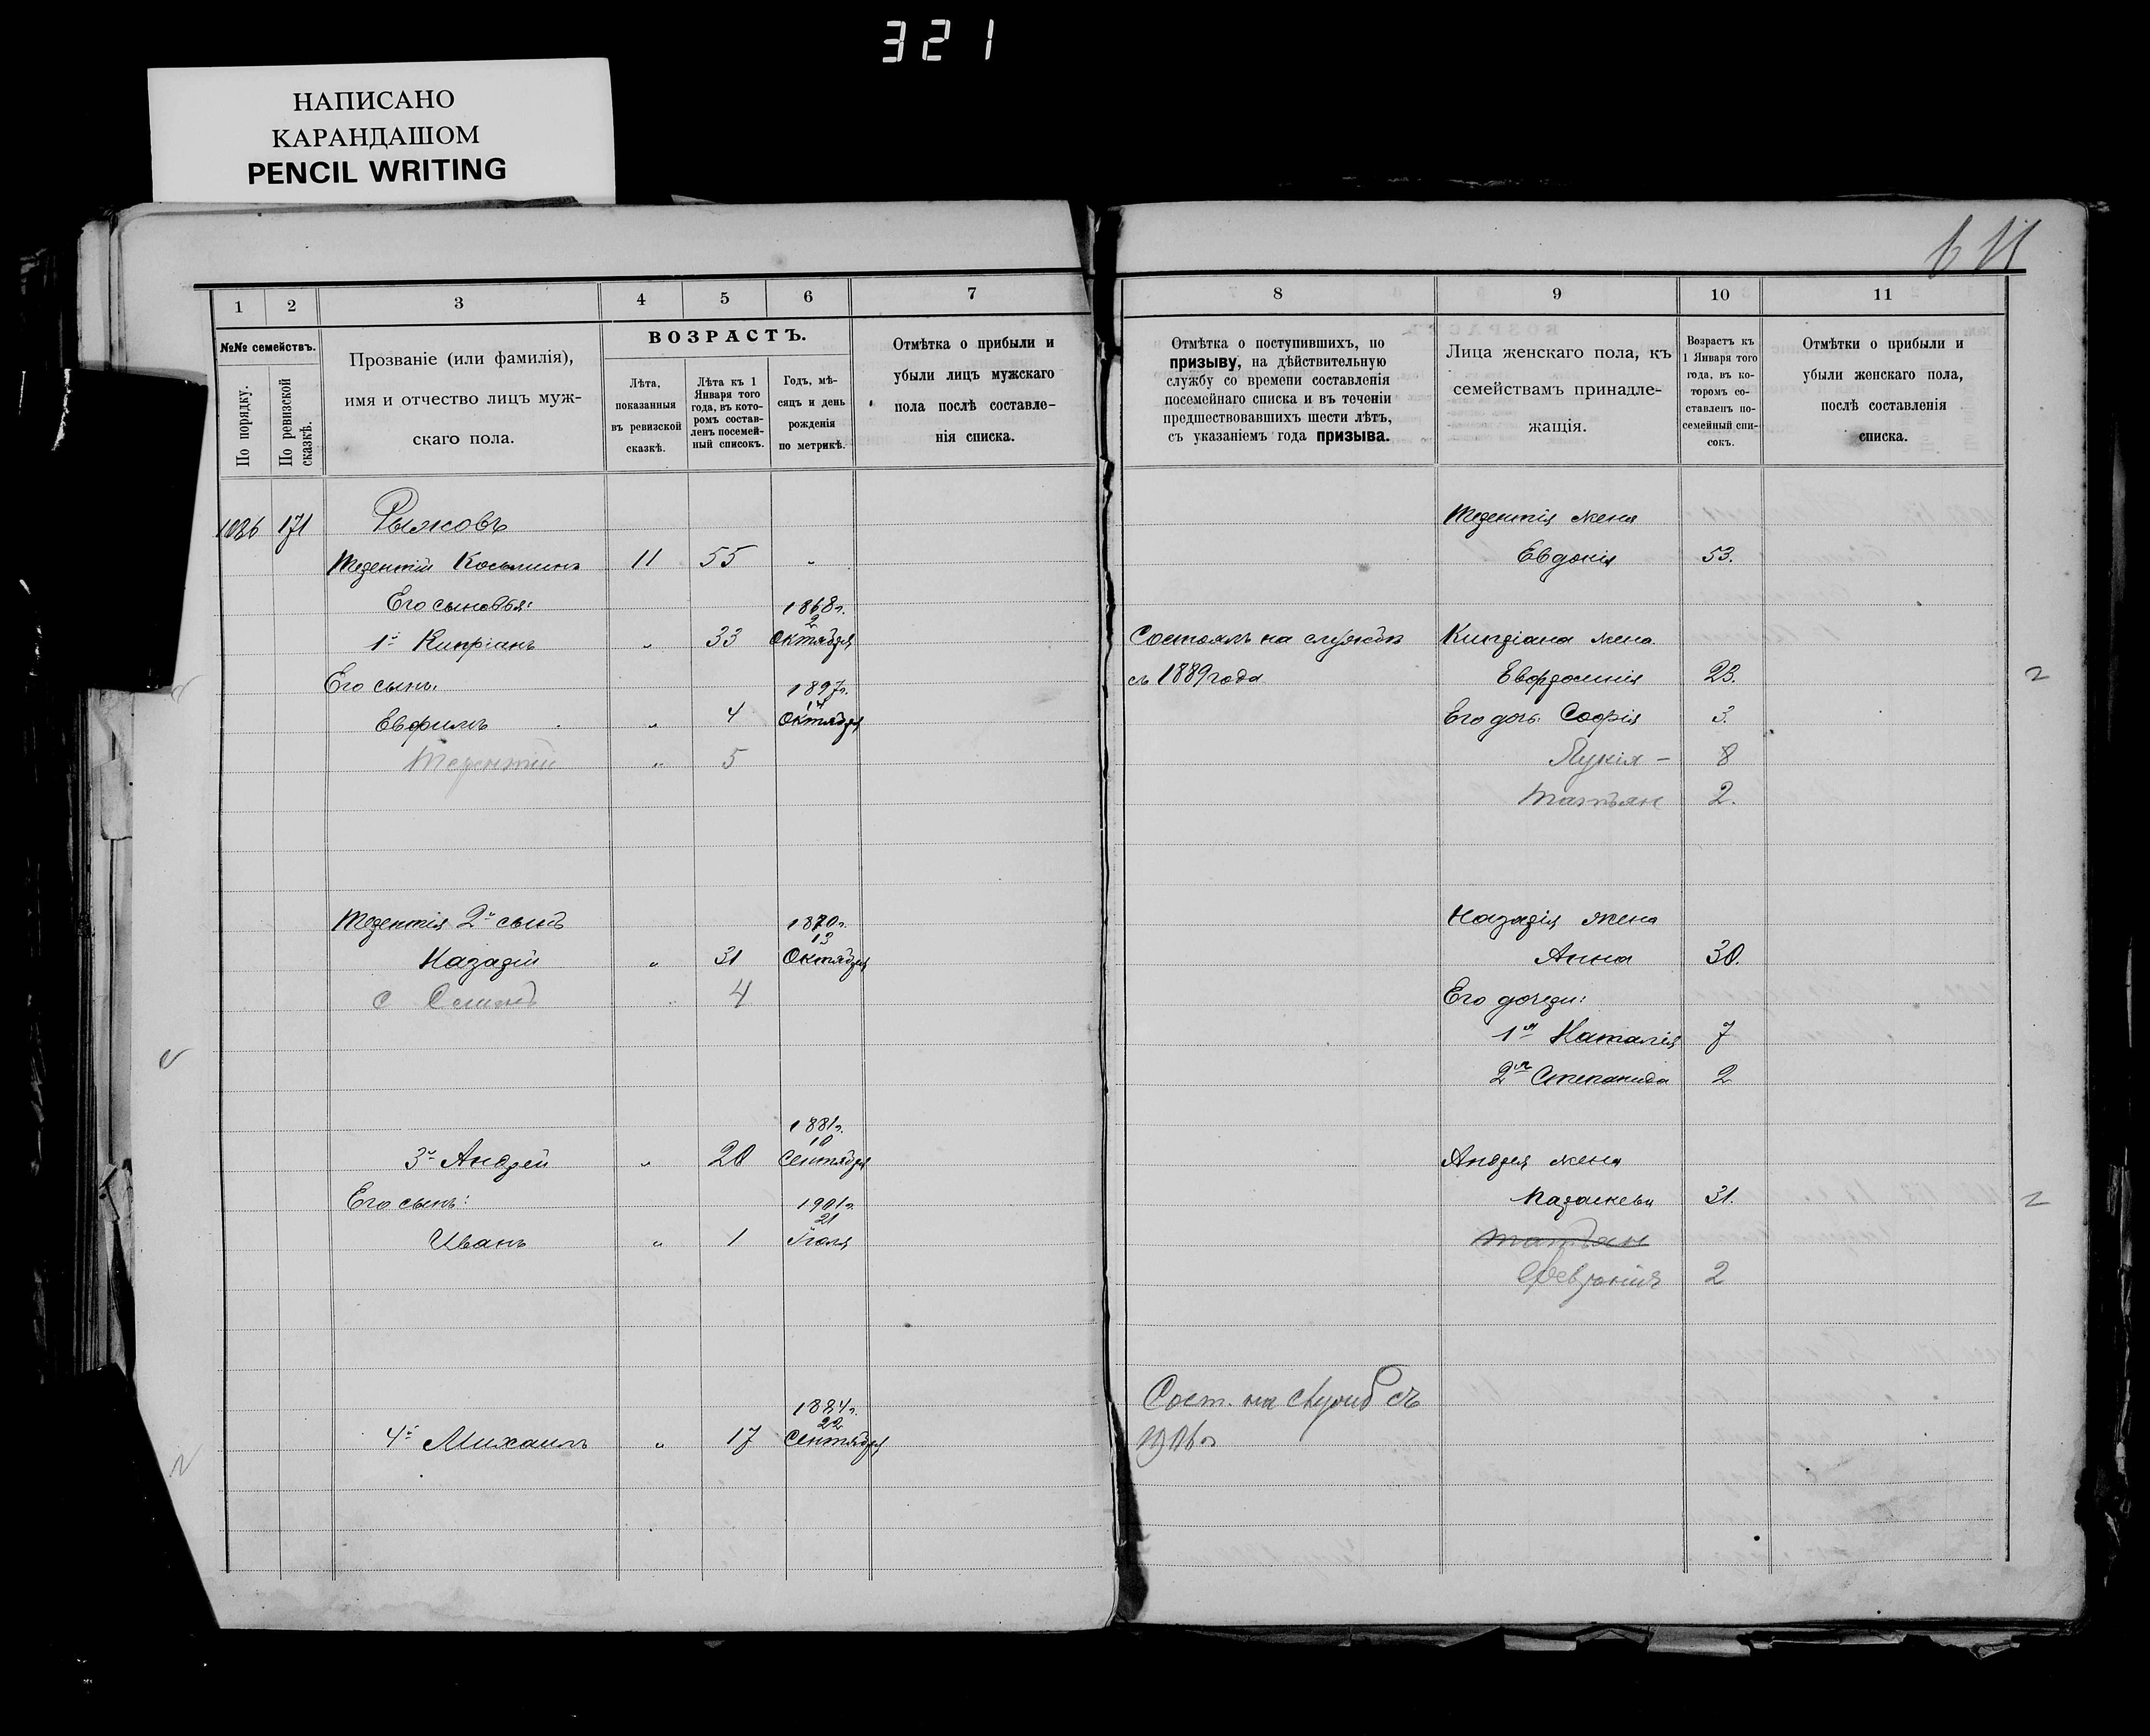 321
НАПИСАНО
КАРАНДАШОМ
PENCIL WRITING
1 2 3 4 5 6 7
№№ семействъ.
По порядку.
По ревизской сказкѣ.
Прозваніе (или фамилія),
имя и отчество лицъ муж-
скаго пола.
ВОЗРАСТЪ.
Лѣта,
показанныя
въ ревизской
сказкѣ.
Лѣта къ 1
Января того
года, въ кото-
ромъ состав-
ленъ посемей-
ный списокъ.
Годъ, мѣ-
сяцъ и день
рожденія
по метрикѣ.
Отмѣтка о прибыли и
убыли лицъ мужскаго
пола послѣ составле-
нія списка.
171 Рыжовъ
Терентій Косьминъ 11 55 "
Его сыновья: 1868г.
2
1й Кипріанъ " 33 Октября
Его сынъ: 1897г.
14
Евфимъ " 4 Октября
Терентій " 5
Терентія 2й сынъ 1870г.
13
Назарій " 31 Октября
с Семенъ " 4
1881г.
10
3й Андрей " 20 Сентября
Его сынъ: 1901г.
21
Иванъ " 1 Іюля
1884г.
22
4й Михаилъ " 17 Сентября
8 9 10 11
Отмѣтка о поступившихъ, по
призыву, на дѣйствительную
службу со времени составленія
посемейнаго списка и въ теченіи
предшествовавшихъ шести лѣтъ,
съ указаніемъ года призыва.
Лица женскаго пола, къ
семействамъ принадле-
жащія.
Возрастъ къ
1 Января того
года, въ ко-
торомъ со-
ставленъ по-
семейный спи-
сокъ.
Отмѣтки о прибыли и
убыли женскаго пола,
послѣ составленія
списка.
Терентія жена
Евдокія 53.
Состоялъ на службѣ Кипріана жена
съ 1889 года Евфросинія 23.
Его дочь: Софія 3.
Лукія - 8
Татьян 2.
Назарія жена
Анна 30.
Его дочери:
1я Наталія 7
2я Степанида 2
Андрея жена
Параскева 31.
Татьян
Февронія 2
Сост. на служб съ
1906г